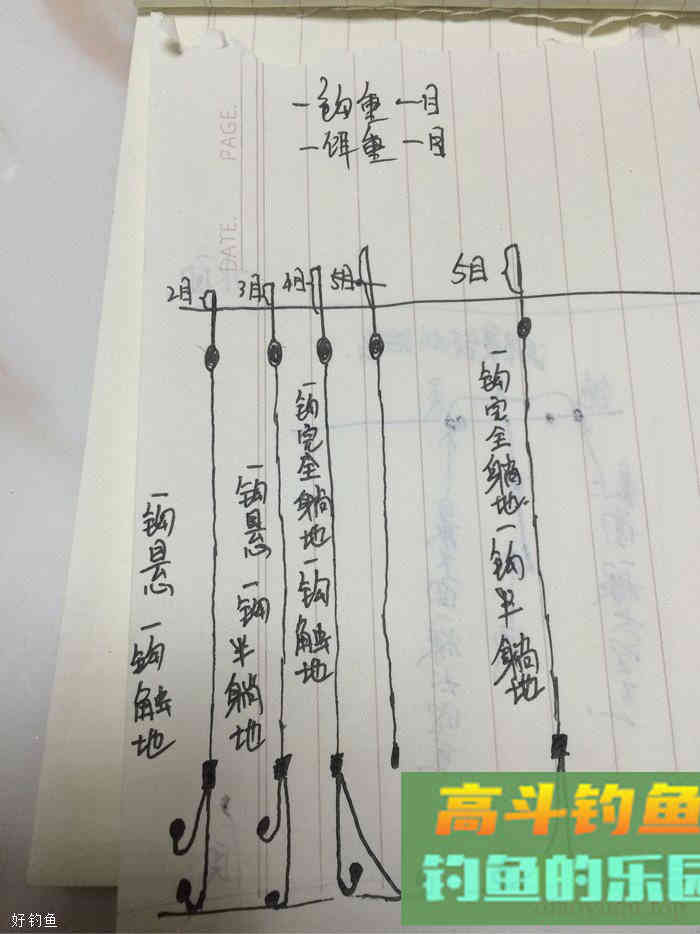 PAGE.
DATE.
一钩重一目
一饵重一目
2目
3目
4目
5目
5目
一钩悬一钩触地
一钩悬一钩半躺地
一钩完全躺地一钩触地
一钩完全躺地一钩半躺地
高斗钓鱼
钓鱼的乐园
好钓鱼